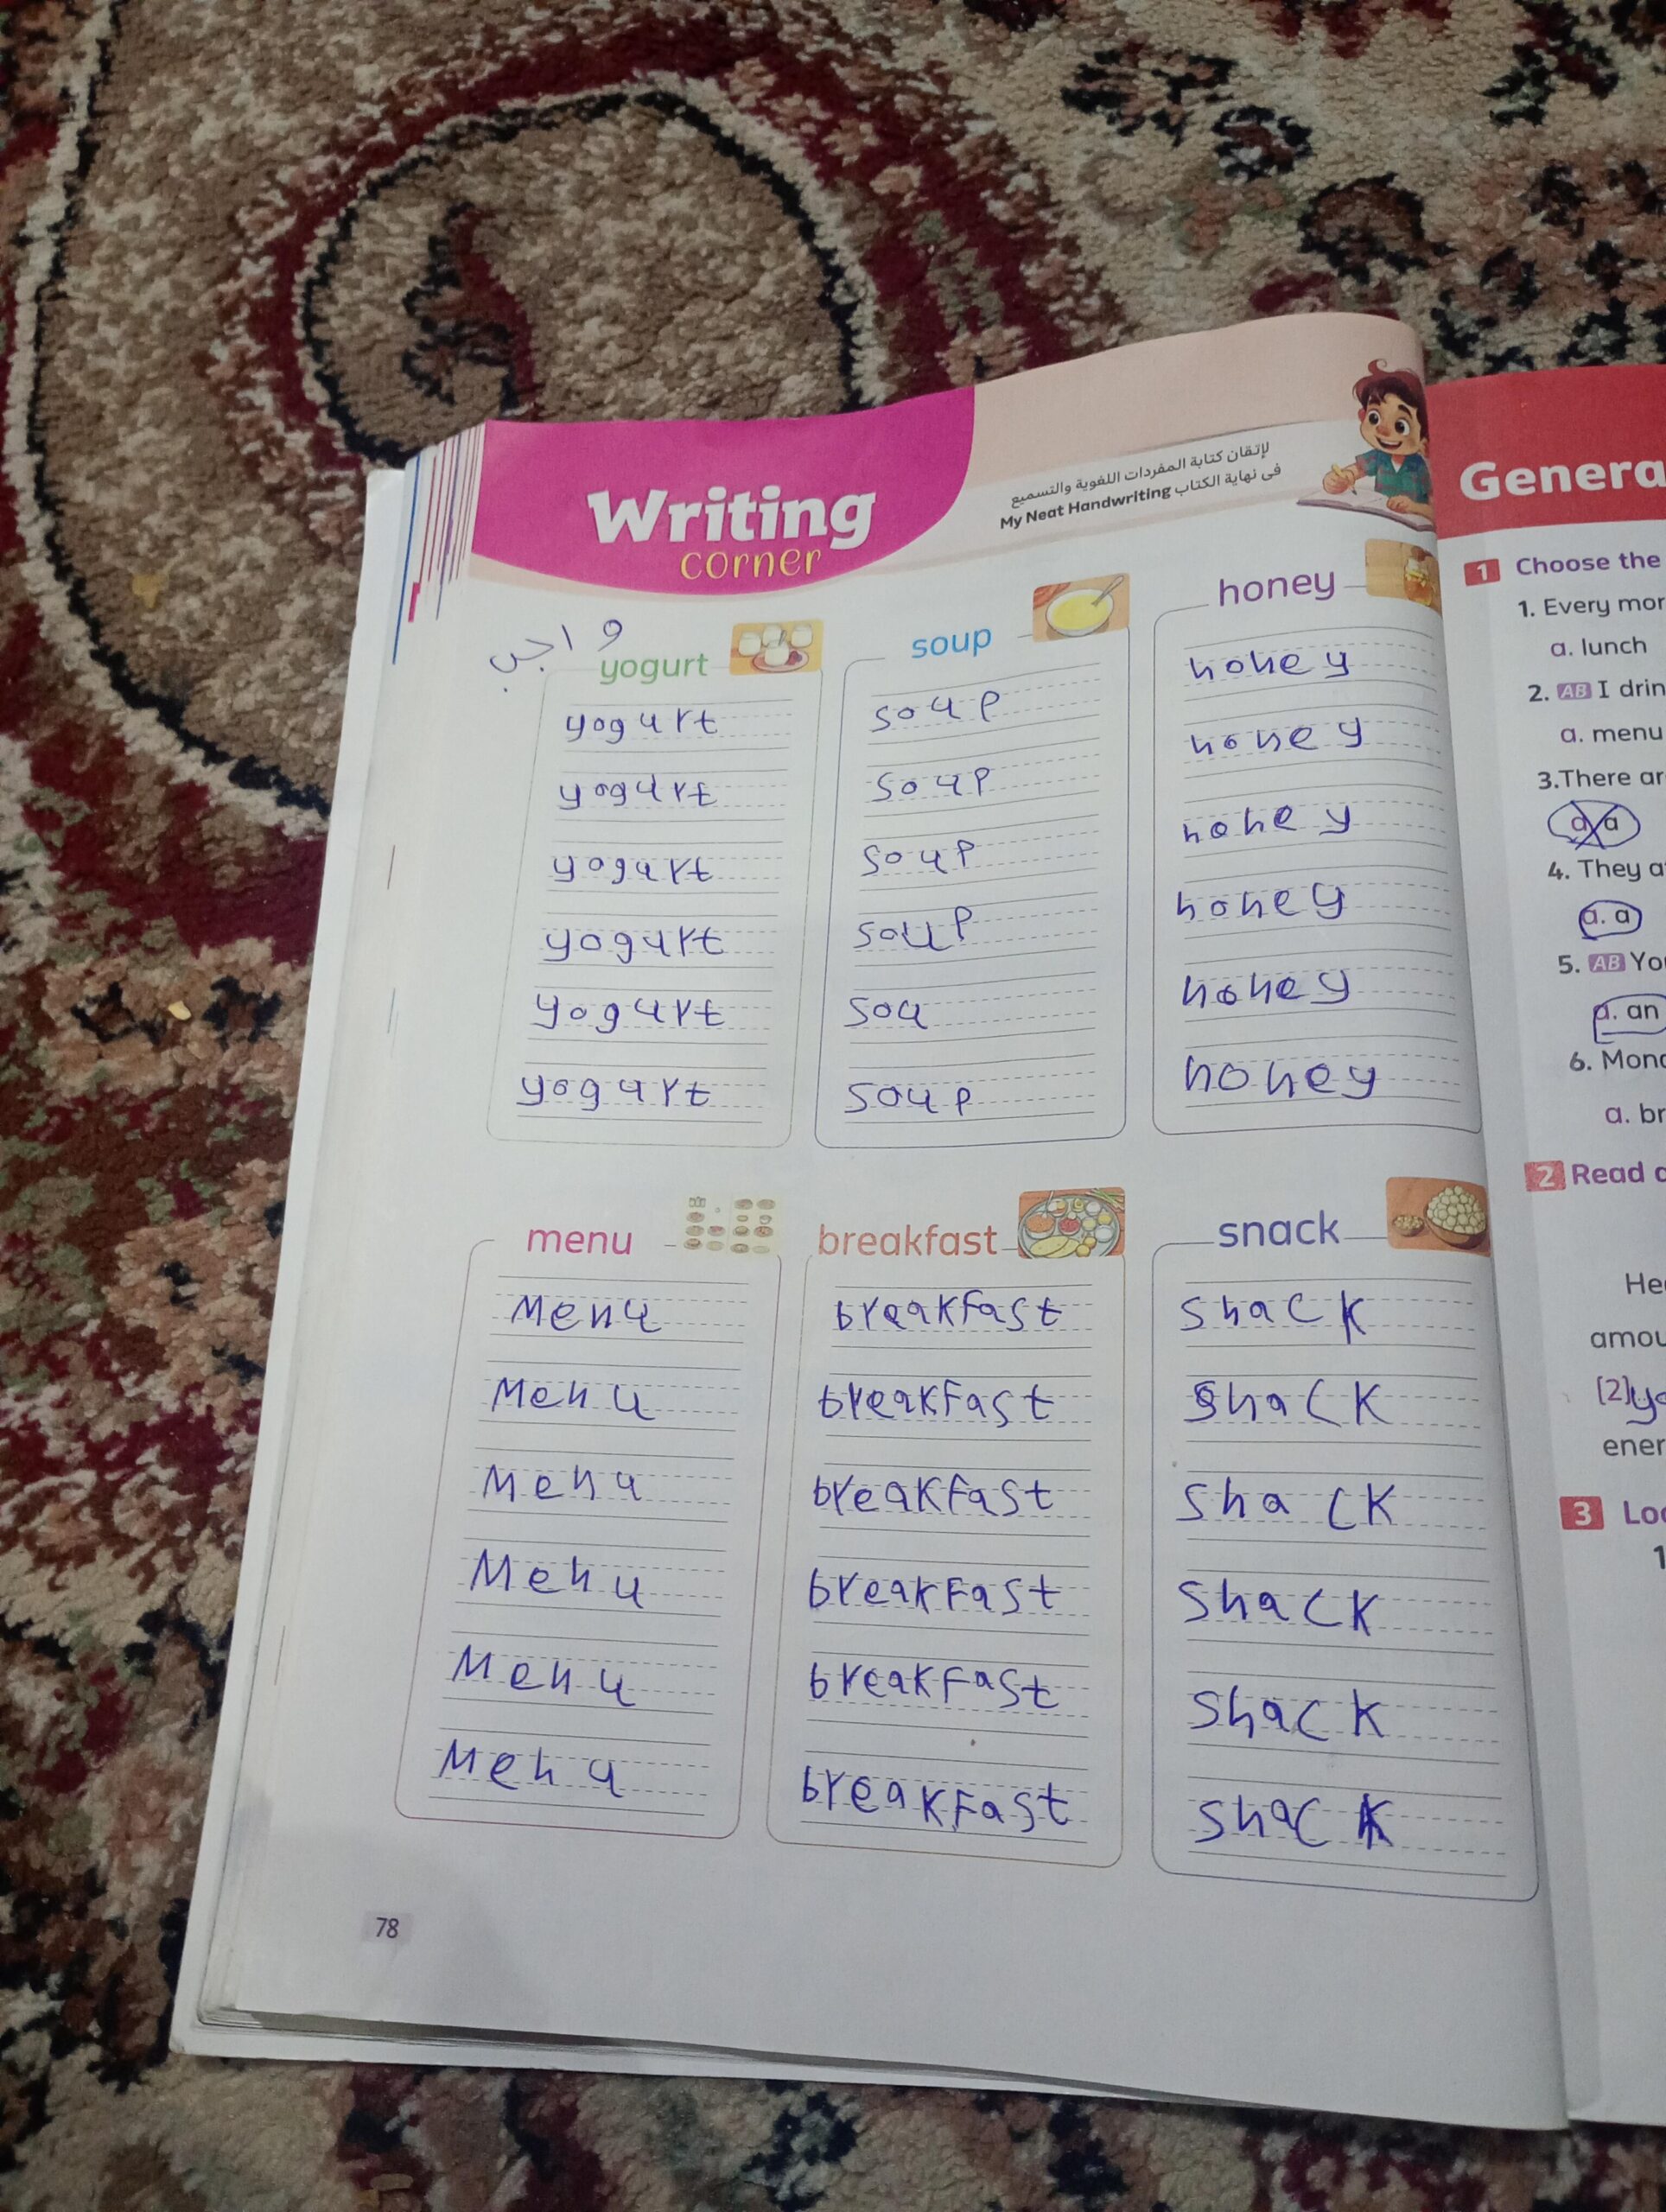 Writing
corner
لإتقان كتابة المفردات اللغوية والتسميع
فى نهاية الكتاب My Neat Handwriting
واجب
yogurt
yogurt
yogurt
yogurt
yogurt
yogurt
yogurt
soup
soup
soup
soup
soup
sou
soup
honey
honey
honey
honey
honey
honey
honey
menu
Menu
Menu
Menu
Menu
Menu
Menu
breakfast
breakFast
breakFast
breakFast
breakFast
breakFast
breakFast
snack
snacK
snacK
snacK
snacK
snacK
snacK
78
Genera
1 Choose the
1. Every mor
a. lunch
2. AB I drin
a. menu
3.There ar
a
4. They a
a. a
5. AB Yo
a. an
6. Mon
a. br
2 Read
He
amou
[2]yo
ener
3 Loo
1